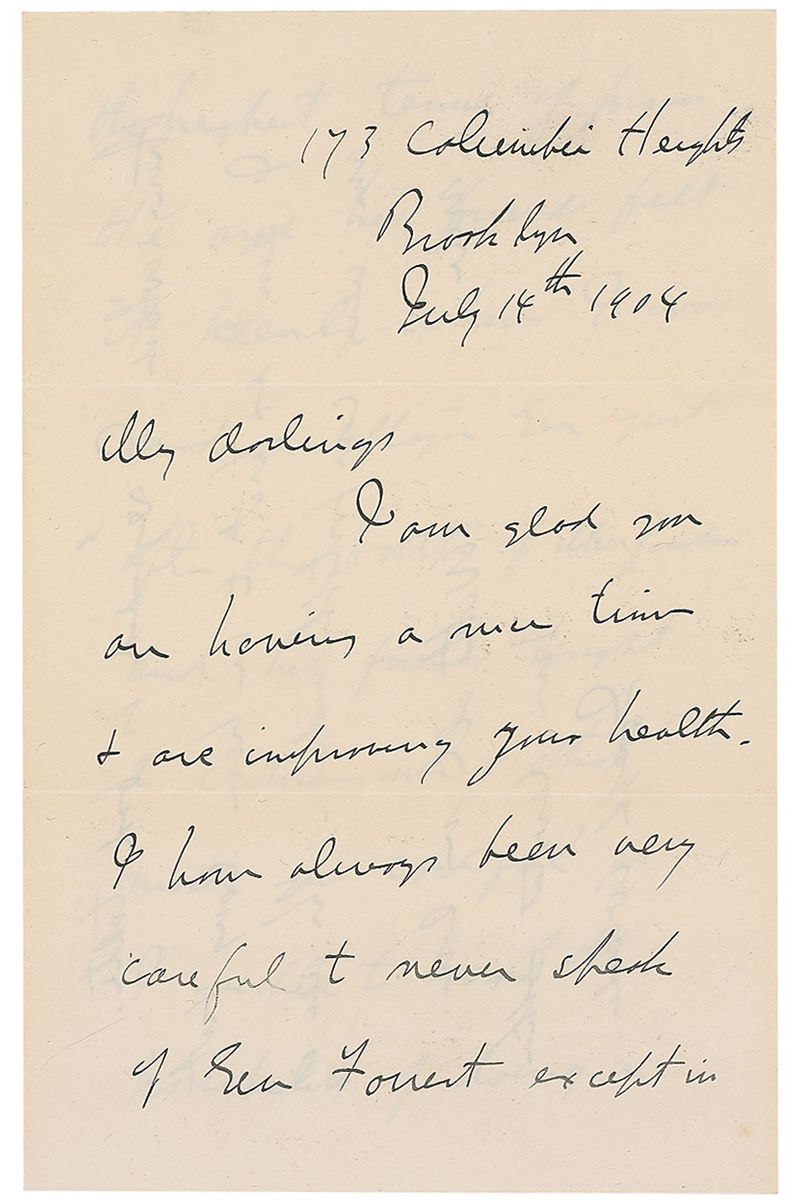 173 Columbia Heights
Brooklyn
July 14th 1904
My darlings
I am glad you
are having a nice time
& are improving your health.
I have always been very
careful & never speak
of Gen Forrest except in